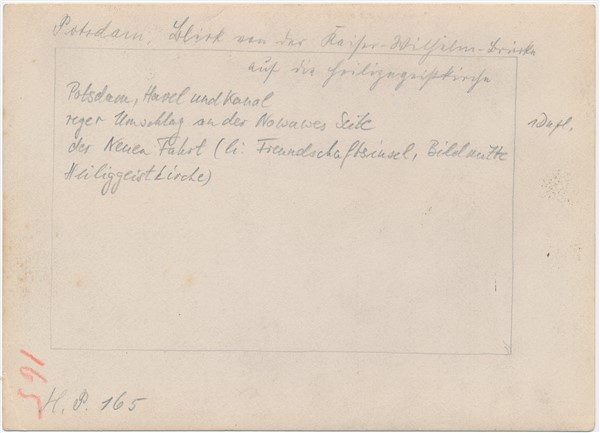 Potsdam. Blick von der Kaiser-Wilhelm-Brücke
auf die Heiligegeistkirche
Potsdam, Havel und Kanal
reger Umschlag an der Nowawes Seite
der Neuen Fahrt (li. Freundschaftsinsel, Bildmitte
Heiliggeistkirche)
1 Dupl.
165
H. P. 165